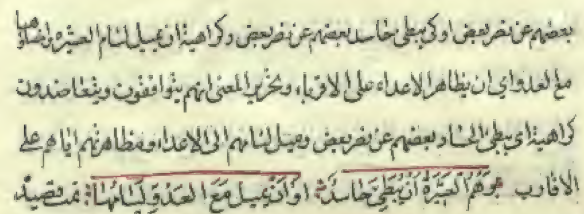 بعضهم عن نصر بعض او كى يبطى حاسد بعضهم عن نصر بعض وكراهية ان يميل لئام العشيرة باعتنائها
مع العدو اى ان يظاهر الاعداء على الاقرباء وتحرير المعنى انهم يتوافقون ويتعاضدون
كراهية اى يبطئ الحساد بعضهم عن نصر بعض ويميل لئامهم الى الاعداء ومظاهرتهم اياهم على
الاقارب هم العشيرة ان يبطئ حاسد او ان يميل مع العدو لئامها تمت قصيدة